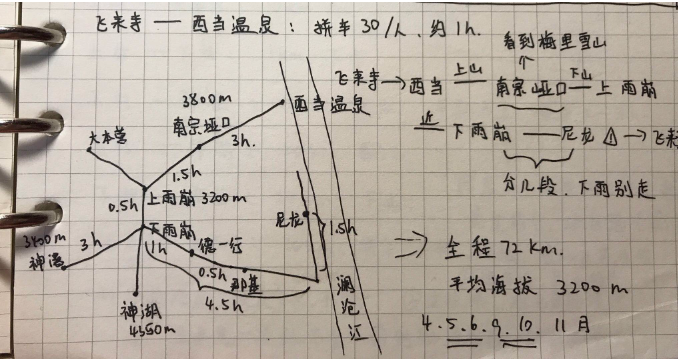 飞来寺 — 西当温泉: 拼车30/人、约1h.
看到梅里雪山
飞来寺→西当 上山 南宗垭口 下山 上雨崩
近 下雨崩 — 尼龙 → 飞来
分几段、下雨别走
⇒ 全程 72 km.
平均海拔 3200 m
4.5.6.9.10.11月
3800m
南宗垭口
西当温泉
3h.
大本营
1.5h
上雨崩 3200m
0.5h
下雨崩
3h
神瀑
1h
德一行
0.5h
那基
4.5h
尼龙
1.5h
澜沧江
神湖
4350m